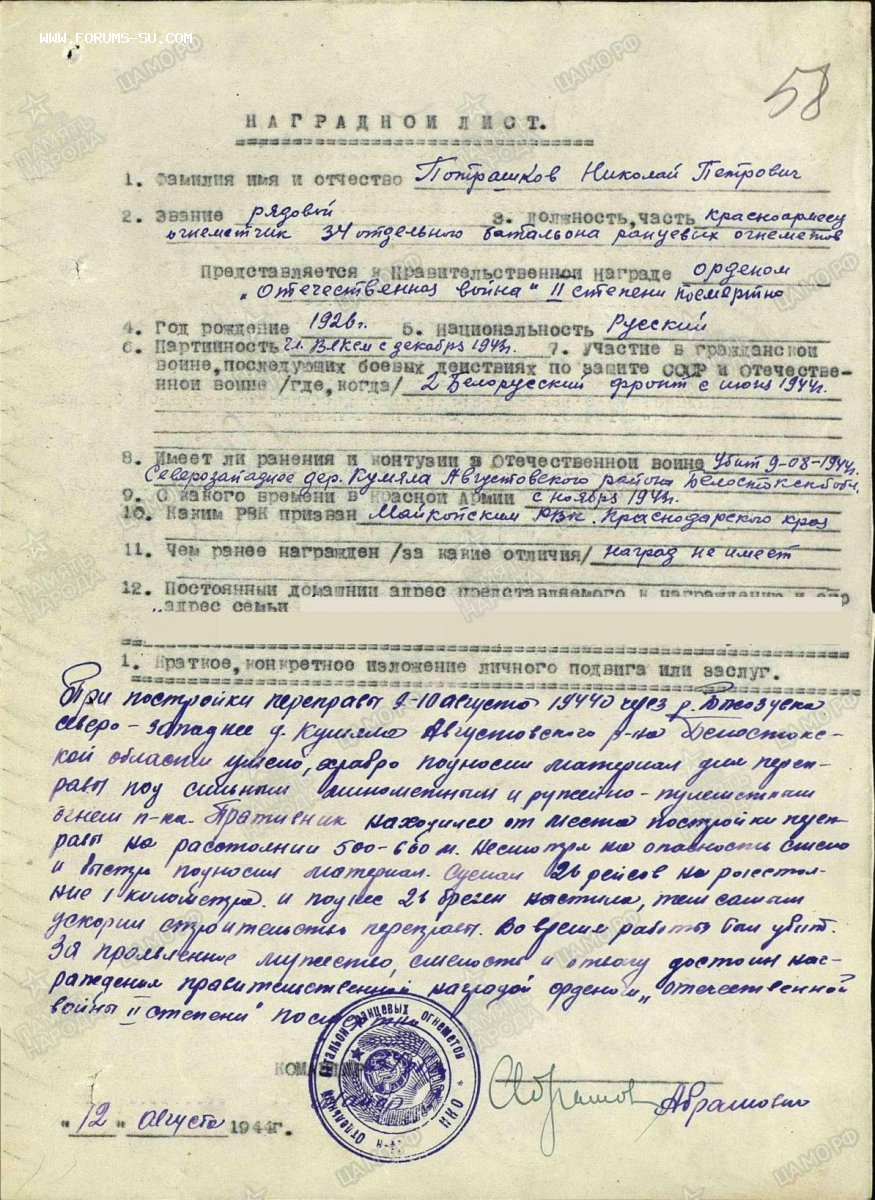 WWW.FORUMS-SU.COM
58
НАГРАДНОЙ ЛИСТ.
1. Фамилия имя и отчество Потрашков Николай Петрович
2. Звание рядовой 3. Должность,часть красноармеец
огнеметчик 34 отдельного батальона ранцевых огнеметов
Представляется к Правительственной награде орденом
"Отечественная война" II степени посмертно
4. Год рождение 1926г. 5. Национальность Русский
6. Партийность Чл. ВЛКСМ с декабря 1943г. 7. Участие в гражданской
войне,последующих боевых действиях по защите СССР и Отечестве-
нной войне /где,когда/ 2 Белорусский фронт с июня 1944г.
8. Имеет ли ранения и контузии в Отечественной войне Убит 9-08-1944г.
Северозападнее дер. Кумяла Августовского района Белостокской обл.
9. С какого времени в Красной Армии с ноября 1943г.
10. Каким РВК призван Майкопским РВК. Краснодарского края
11. Чем ранее награжден /за какие отличия/ наград не имеет
12. Постоянный домашний адрес представляемого к награждению и
адрес семьи
1. Краткое,конкретное изложение личного подвига или заслуг.
При постройки переправы 9-10 августа 1944г через р.
северо-западнее д. Кумяла Августовского р-на Белостокс-
кой области умело, храбро подносил материал для переп-
равы под сильным минометным и ружейно-пулеметным
огнем п-ка. Противник находился от места постройки переп-
равы на расстоянии 500-600 м. Несмотря на опасность смело
и быстро подносил материал. Сделал 26 рейсов на расстоя-
ние 1 километра и поднес 26 бревен настила, тем самым
ускорил строительство переправы. Во время работы был убит.
За проявленное мужество, смелость и отвагу достоин наг-
раждения правительственной наградой орденом "Отечественной
войны II степени" посмертно
КОМАНДИР
Отдельный батальон ранцевых огнеметов
НКО
Абрамович
"12" августа 1944г.
ПАМЯТЬ НАРОДА
ЦАМО РФ